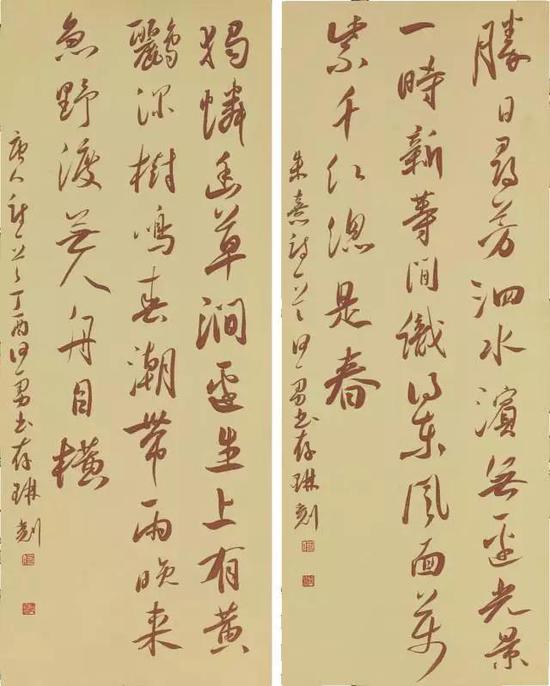 勝日尋芳泗水濱無邊光景
一時新等閒識得東風面萬
紫千紅總是春
朱熹詩一首書存琳刻
獨憐幽草澗邊生上有黃
鸝深樹鳴春潮帶雨晚來
急野渡無人舟自橫
唐人詩一首丁酉書存琳刻